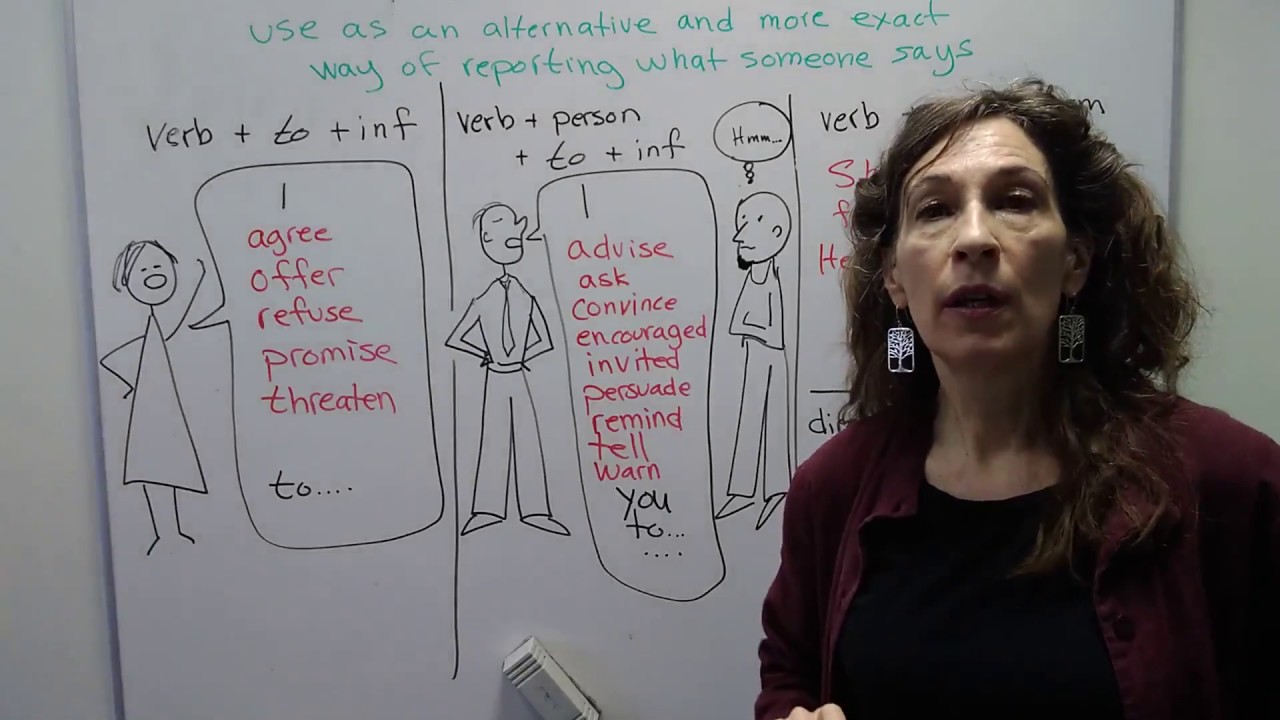 use as an alternative and more exact
way of reporting what someone says
verb + to + inf
I
agree
offer
refuse
promise
threaten
to....
verb + person
+ to + inf
I
advise
ask
convince
encouraged
invited
persuade
remind
tell
warn
you
to...
....
Hmm...
verb